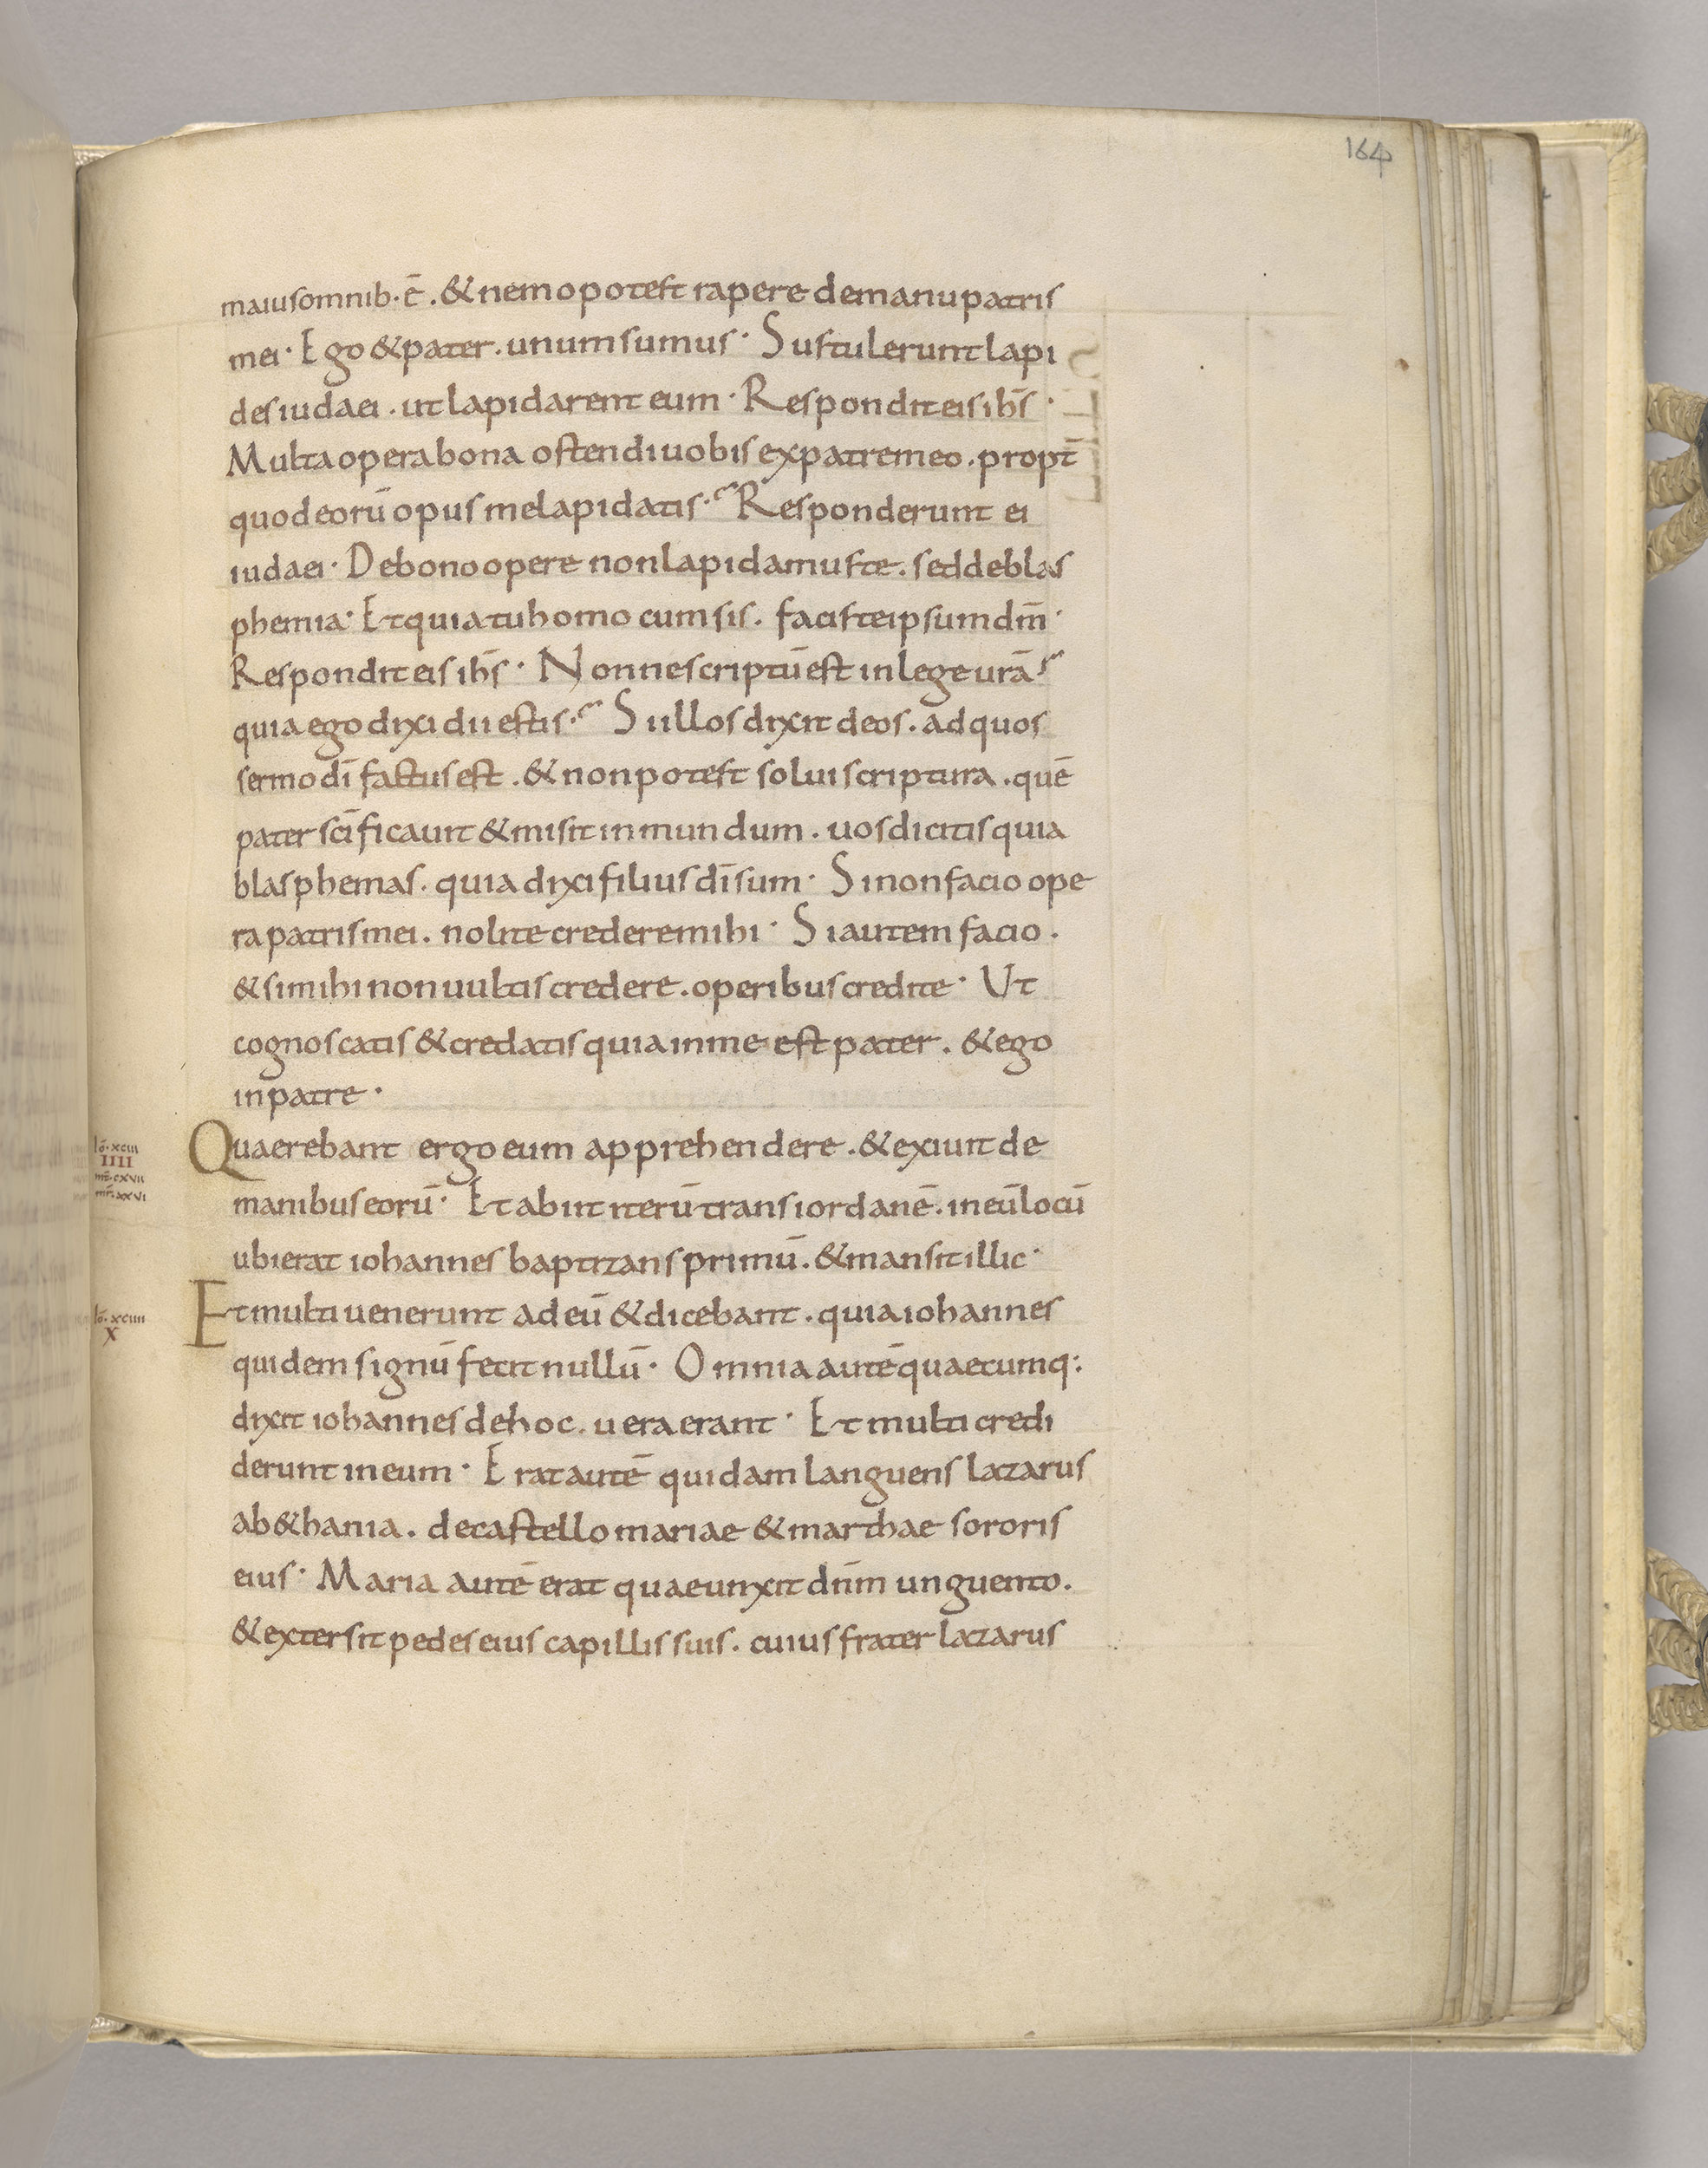 164
maiusomnib·ē. &nemopotest rapere demanupatris
mei· Ego &pater. unumsumus· Sustulerunt lapi
des iudaei. ut lapidarent eum· Respondit eis ihs̄·
Multa opera bona ostendi uobis expatremeo. propt̄
quodeorū opus melapidatis· Responderunt ei
iudaei· Debono opere nonlapidamus te. sed deblas
phemia· Et quia tu homo cum sis. facis teipsum dm̄·
Respondit eis ihs̄· Nonne scriptū est inlege urā
quia ego dixi dii estis· Si illos dixit deos. ad quos
sermo dī factus est. & non potest solui scriptura. quē
pater scīficauit & misit in mundum. uos dicitis quia
blasphemas. quia dixi filius dī sum· Si non facio ope
ra patris mei. nolite credere mihi· Si autem facio.
& si mihi non uultis credere. operibus credite· Ut
cognoscatis & credatis quia in me est pater. & ego
in patre·
lō·xciii
Quaerebant ergo eum apprehendere. & exiuit de
IIII
mt̄·cxvii
mr̄·xxvi
manibus eorū· Et abiit iterū trans iordanē. in eū locū
ubi erat iohannes baptizans primū. & mansit illic·
Et multi uenerunt ad eū & dicebant. quia iohannes
lō·xciiii
X
quidem signū fecit nullū· Omnia autē quaecumq:
dixit iohannes de hoc. uera erant· Et multi credi
derunt in eum· Erat autē quidam languens lazarus
a b&hania. de castello mariae & marthae sororis
eius· Maria autē erat quae unxit dnm̄ unguento.
& extersit pedes eius capillis suis. cuius frater lazarus